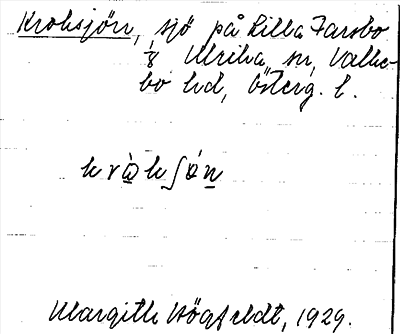 Kroksjön, sjö på Lilla Farsbo
i Ulrika sn, Valke-
bo hd, Österg. l.
kràkʃón
Margith Högfeldt, 1929.